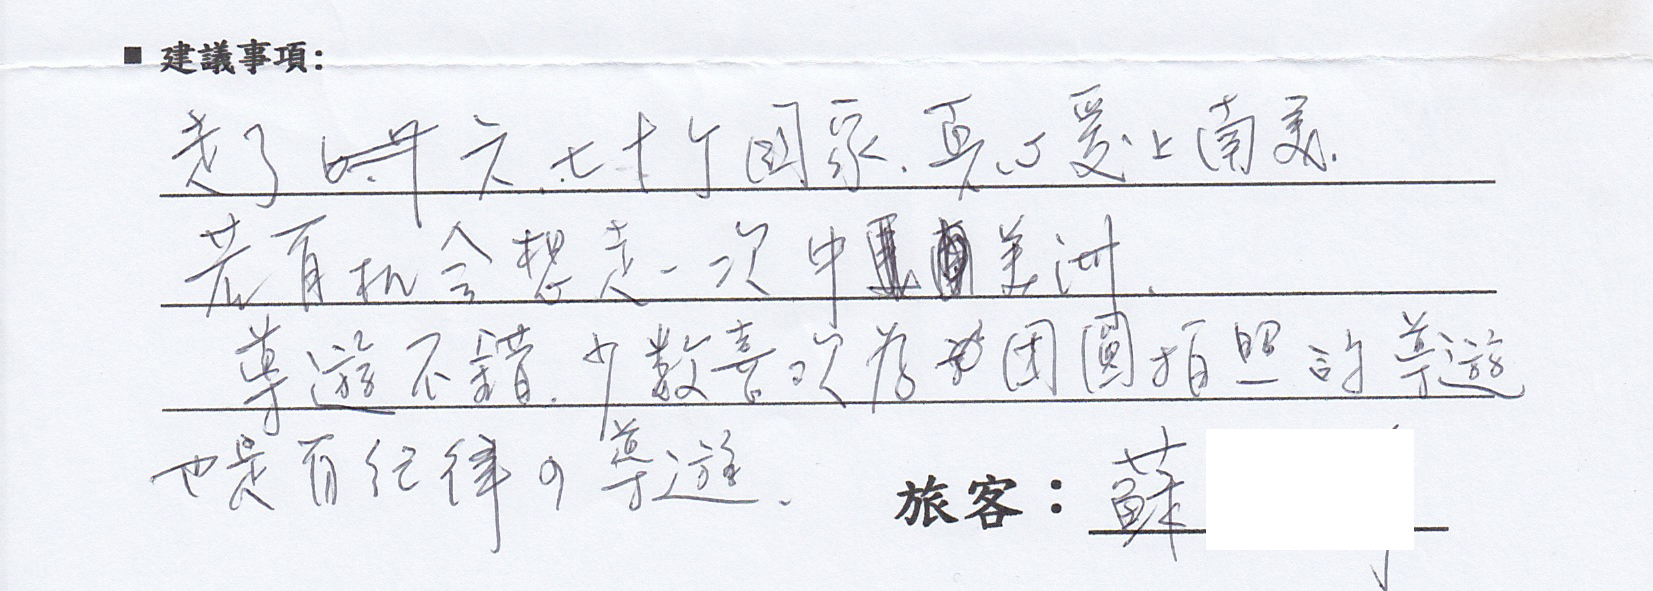 ■ 建議事項:
走了六.七十个國家.真心愛上南美.
若有机会想走一次中美洲.
導遊不錯.少數喜歡為團員拍照的導遊
也是有紀律的導遊.
旅客：蘇